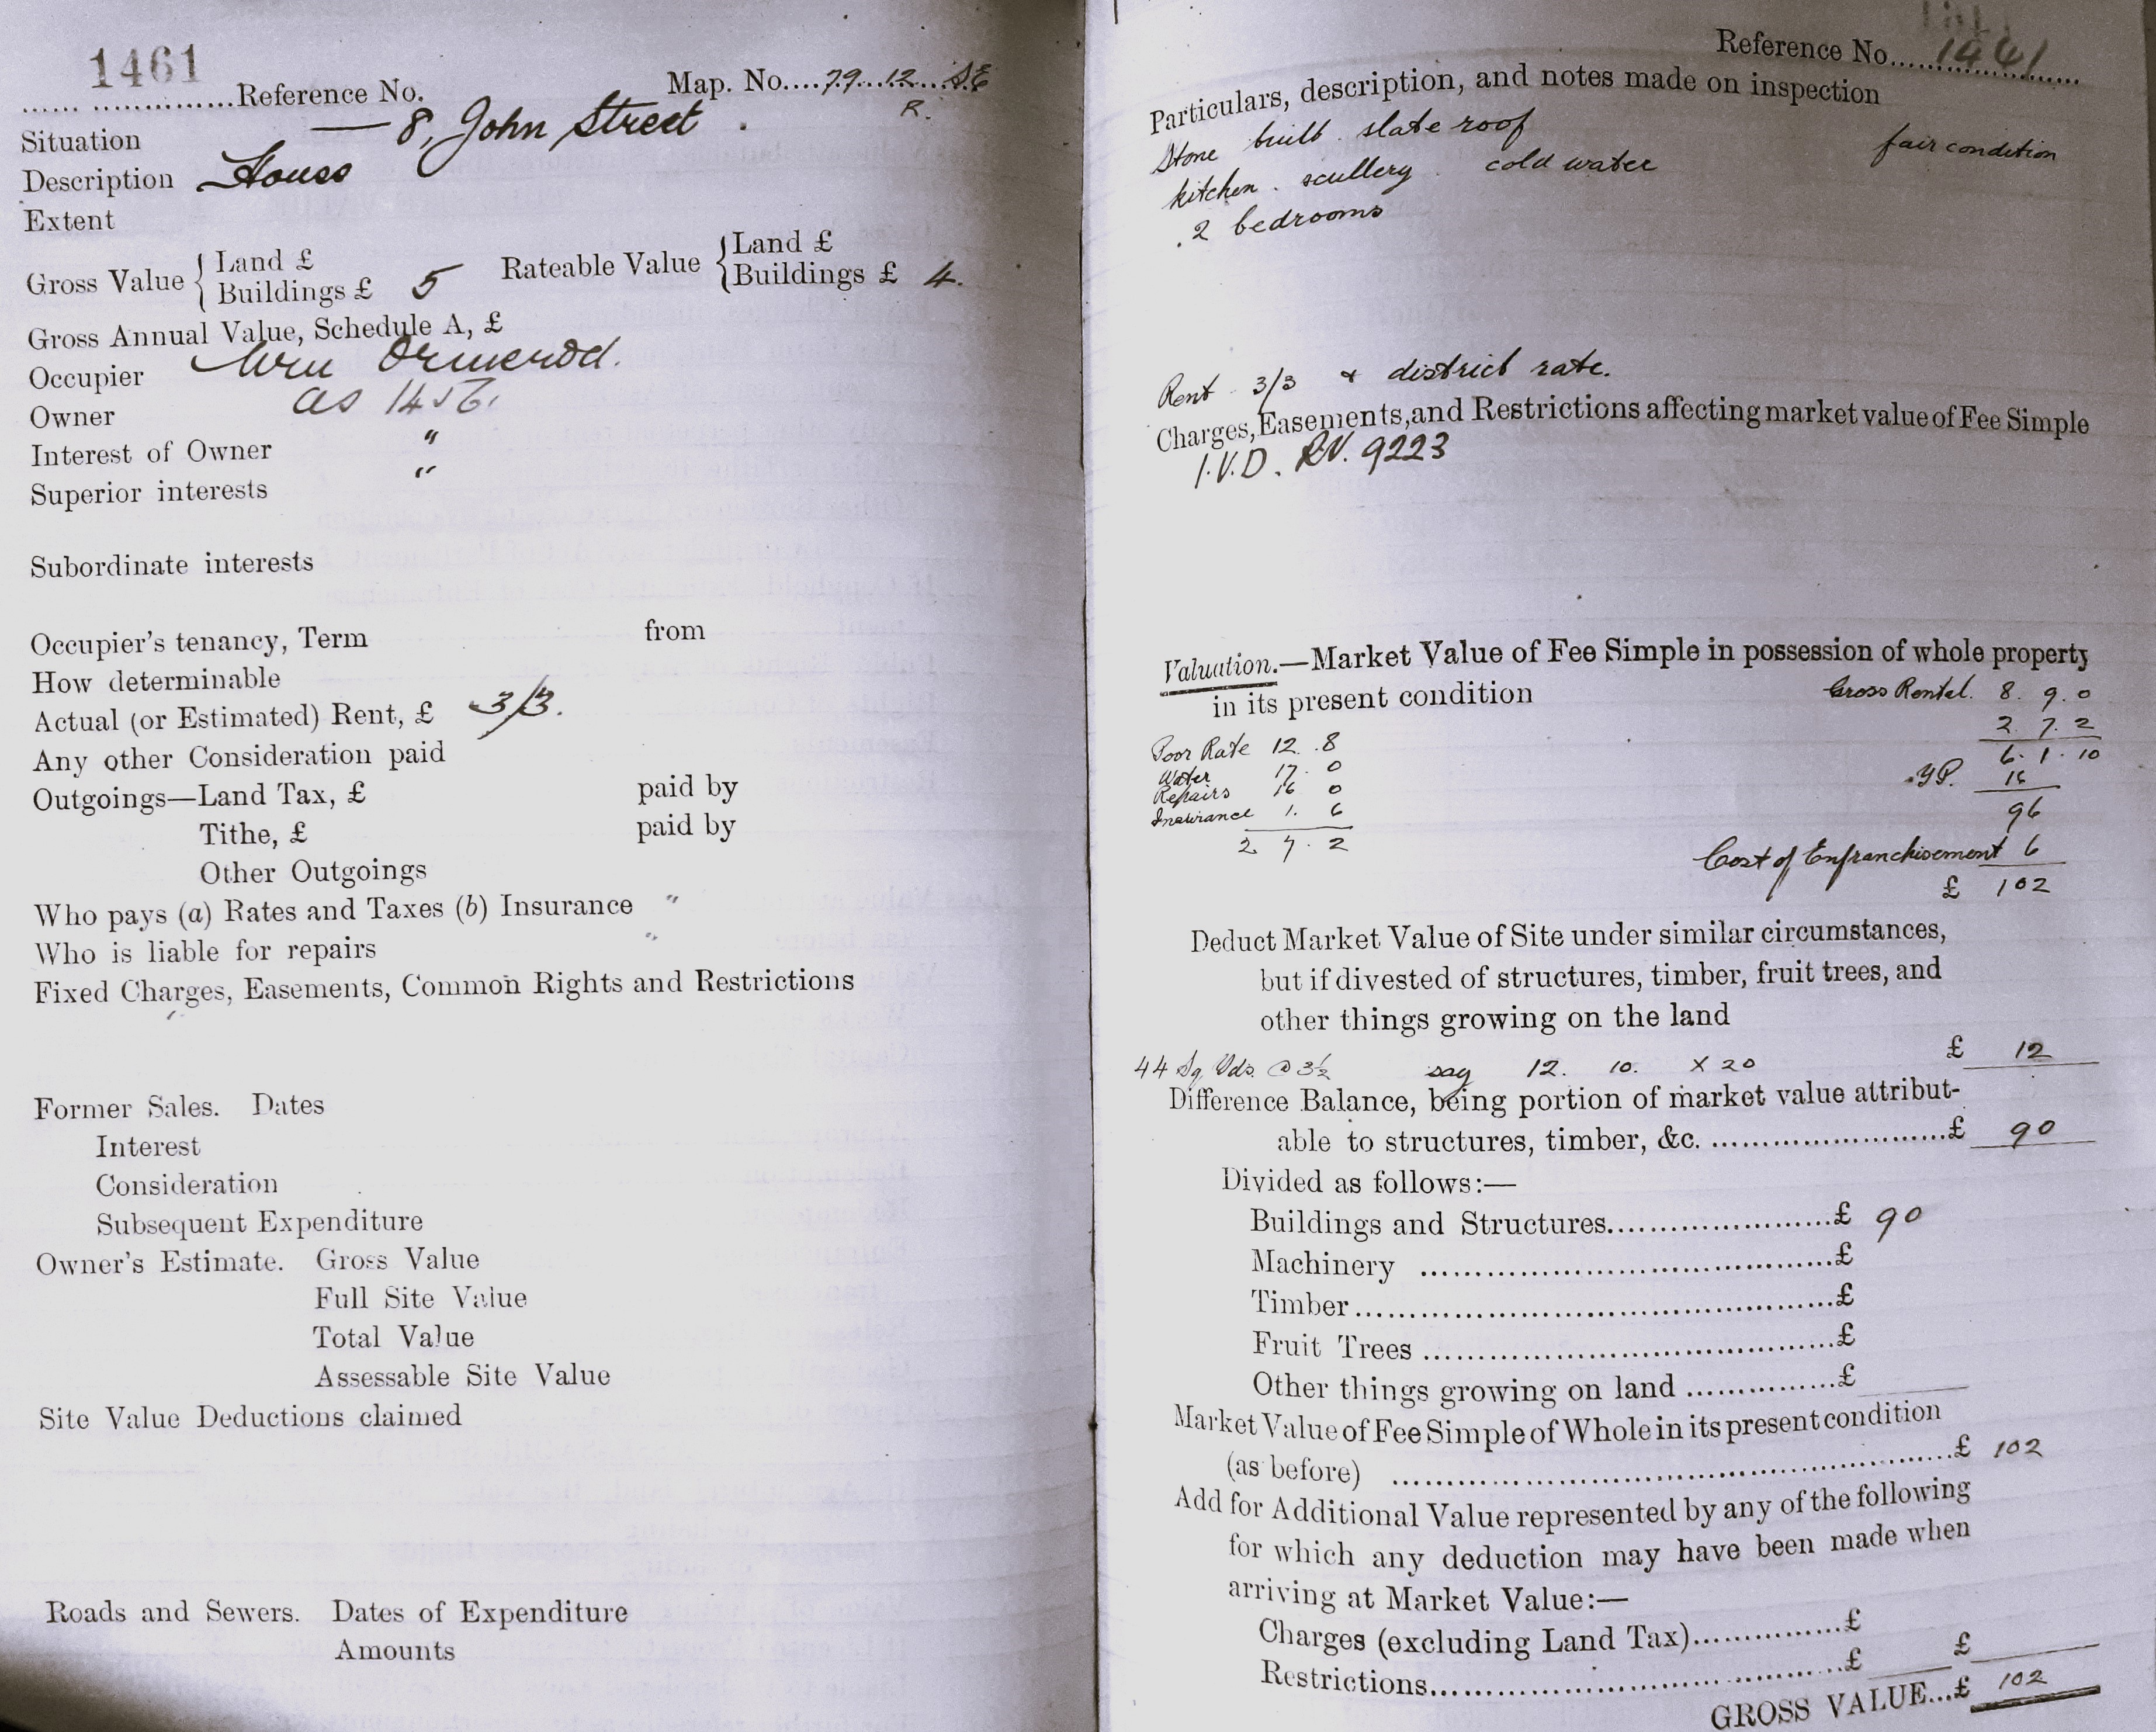 1461
...... ..............Reference No. Map. No....79...12...S.E
R.
Situation — 8, John Street .
Description House
Extent
Gross Value { Land £ Rateable Value { Land £
Buildings £ 5 Buildings £ 4.
Gross Annual Value, Schedule A, £
Occupier Wm Ormerod.
Owner as 1456.
Interest of Owner "
Superior interests "
Subordinate interests
Occupier's tenancy, Term from
How determinable
Actual (or Estimated) Rent, £ 3/3.
Any other Consideration paid
Outgoings—Land Tax, £ paid by
Tithe, £ paid by
Other Outgoings
Who pays (a) Rates and Taxes (b) Insurance "
Who is liable for repairs "
Fixed Charges, Easements, Common Rights and Restrictions
"
Former Sales. Dates
Interest
Consideration
Subsequent Expenditure
Owner's Estimate. Gross Value
Full Site Value
Total Value
Assessable Site Value
Site Value Deductions claimed
Roads and Sewers. Dates of Expenditure
Amounts
Reference No.....1461
Particulars, description, and notes made on inspection
Stone built slate roof fair condition
kitchen . scullery . cold water
. 2 bedrooms
Rent - 3/3 + district rate.
Charges, Easements, and Restrictions affecting market value of Fee Simple
I.V.D. RV. 9223
Valuation.—Market Value of Fee Simple in possession of whole property
in its present condition Gross Rental. 8. 9. 0
2. 7. 2
Poor Rate 12. 8 6. 1. 10
Water 17. 0 Y.P. 16
Repairs 16 0
Insurance 1. 6 96
2 7. 2 Cost of Enfranchisement 6
£ 102
Deduct Market Value of Site under similar circumstances,
but if divested of structures, timber, fruit trees, and
other things growing on the land
44 Sq Yds. @ 3½ say 12. 10. x 20 £ 12
Difference Balance, being portion of market value attribut-
able to structures, timber, &c. ..........................£ 90
Divided as follows:—
Buildings and Structures.......................£ 90
Machinery ..........................................£
Timber................................................£
Fruit Trees .........................................£
Other things growing on land ...............£
Market Value of Fee Simple of Whole in its present condition
(as before) ......................................................£ 102
Add for Additional Value represented by any of the following
for which any deduction may have been made when
arriving at Market Value:—
Charges (excluding Land Tax)...............£
Restrictions..........................................£ £
GROSS VALUE...£ 102